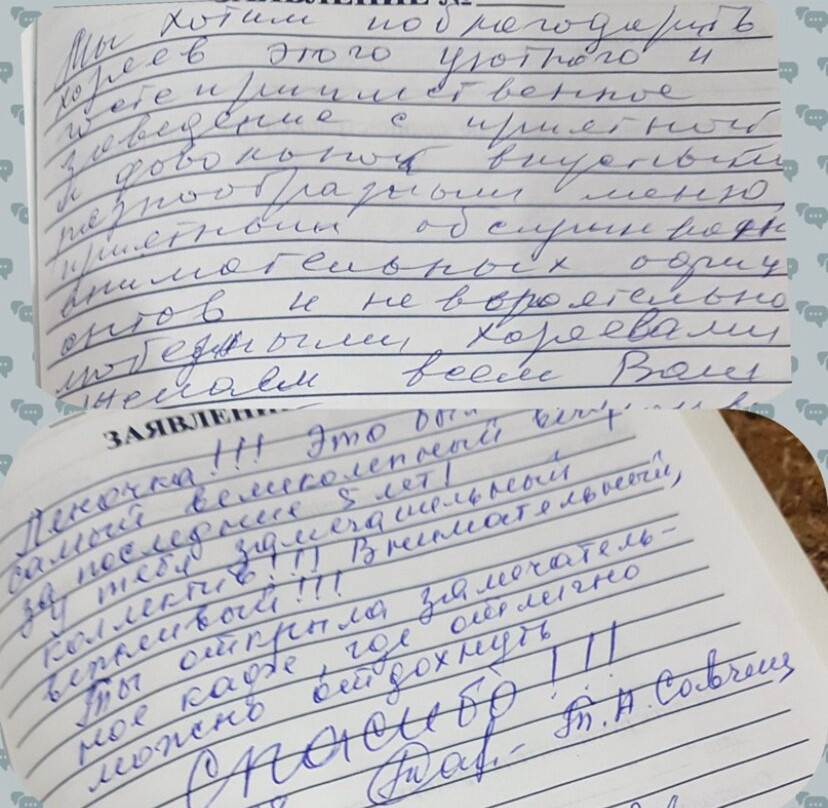 ЗАЯВЛЕНИЕ №
Мы хотим поблагодарить
хозяев этого уютного и
гостеприимственное
заведение с приятной
и довольной вкусным
разнообразным меню,
приятным обслуживан
внимательных офици
антов и невороятельно
любезными хозяевами
желаем всем Вам
ЗАЯВЛЕНИ
Леночка!!! Это был
самый великолепный
за последние 5 лет!
У тебя замечательный
коллектив!!! Внимательный,
вежливый!!!
Ты открыла замечатель-
ное кафе, где отлично
можно отдохнуть
Спасибо!!!
Т.А.